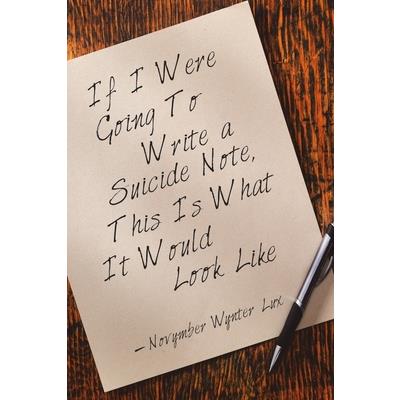 If I Were
Going To
Write a
Suicide Note,
This Is What
It Would
Look Like
—Novymber Wynter Lux